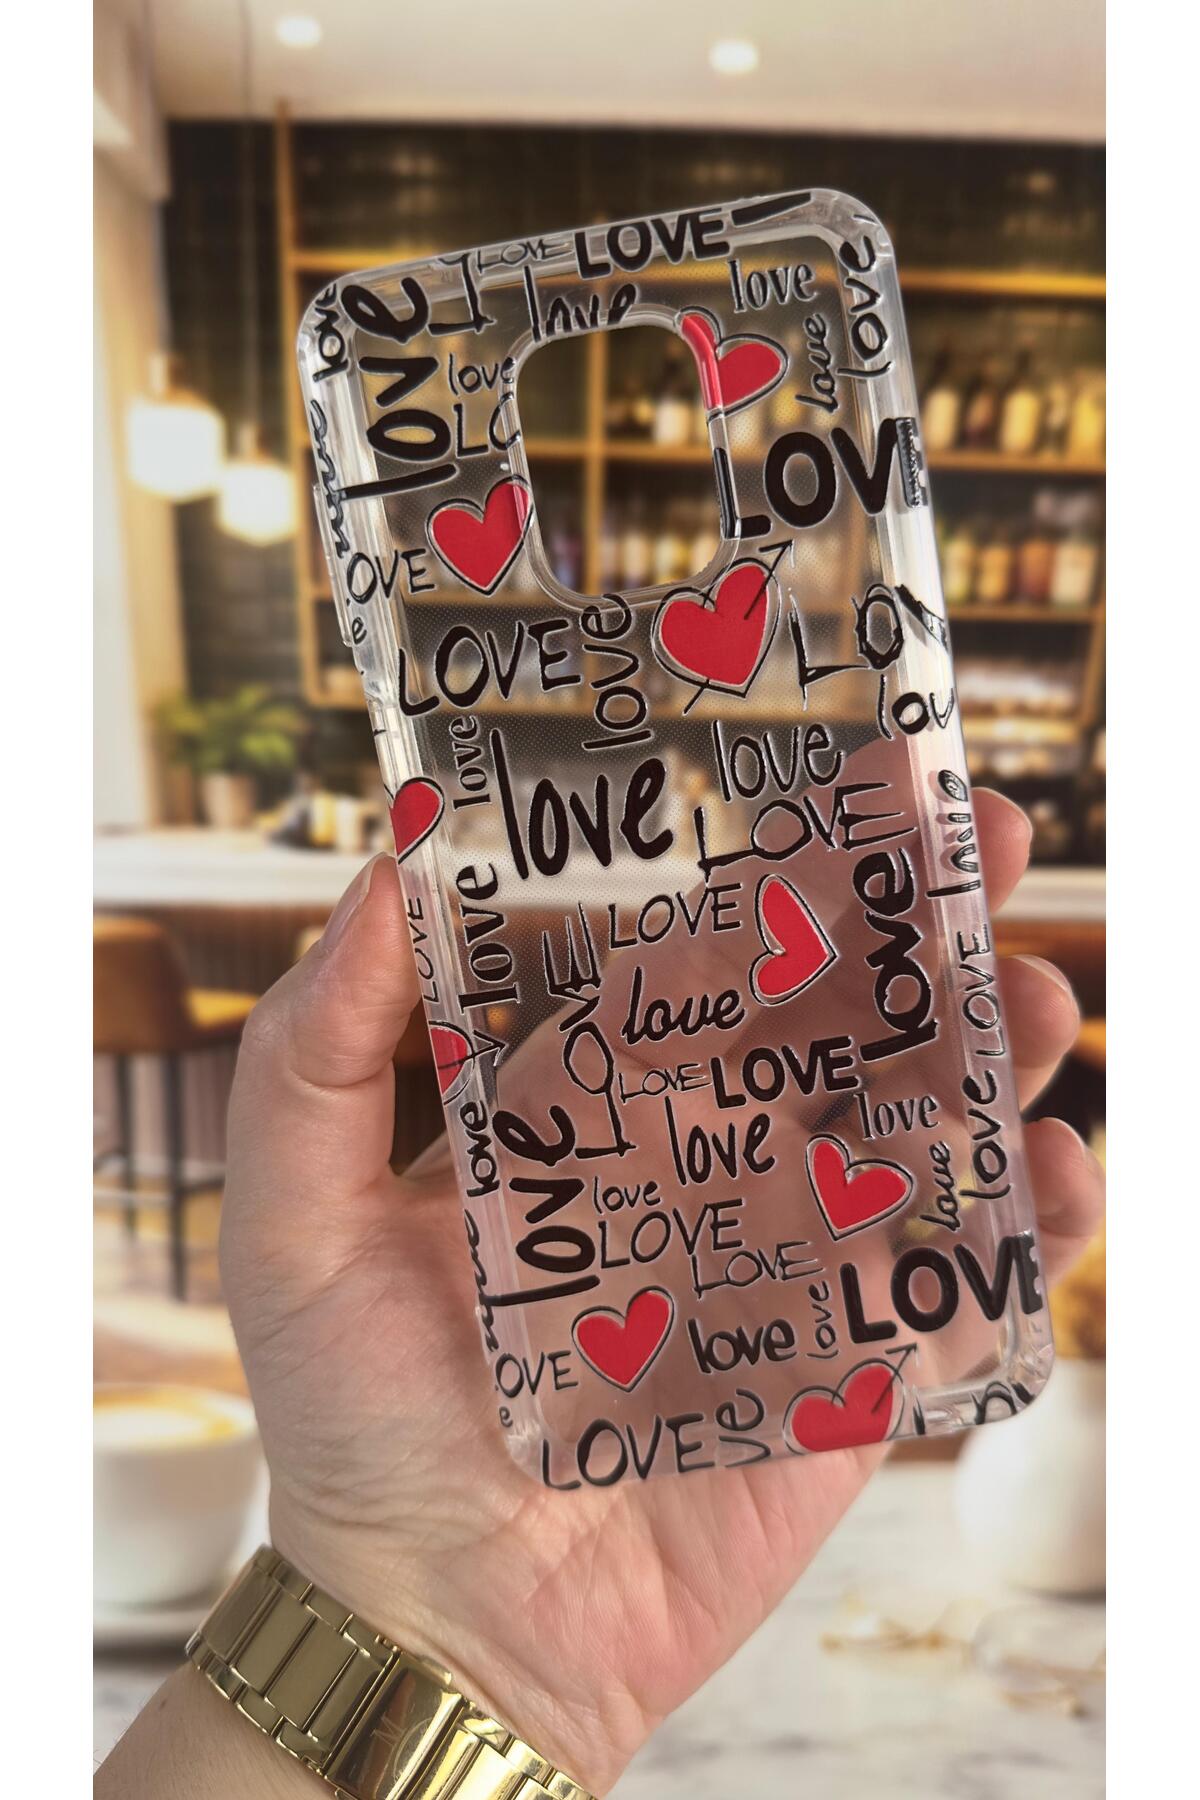 LOVE LOVE
love
love
love
love
love
love
love
LOVE
OVE
LOVE
love
love
love
love
LOVE
love
LOVE
love
love
LOVE
LOVE
love
LOVE
LOVE
LOVE
love
love
love
love
love
love
love
love
LOVE
LOVE
love
love
LOVE
OVE
LOVE